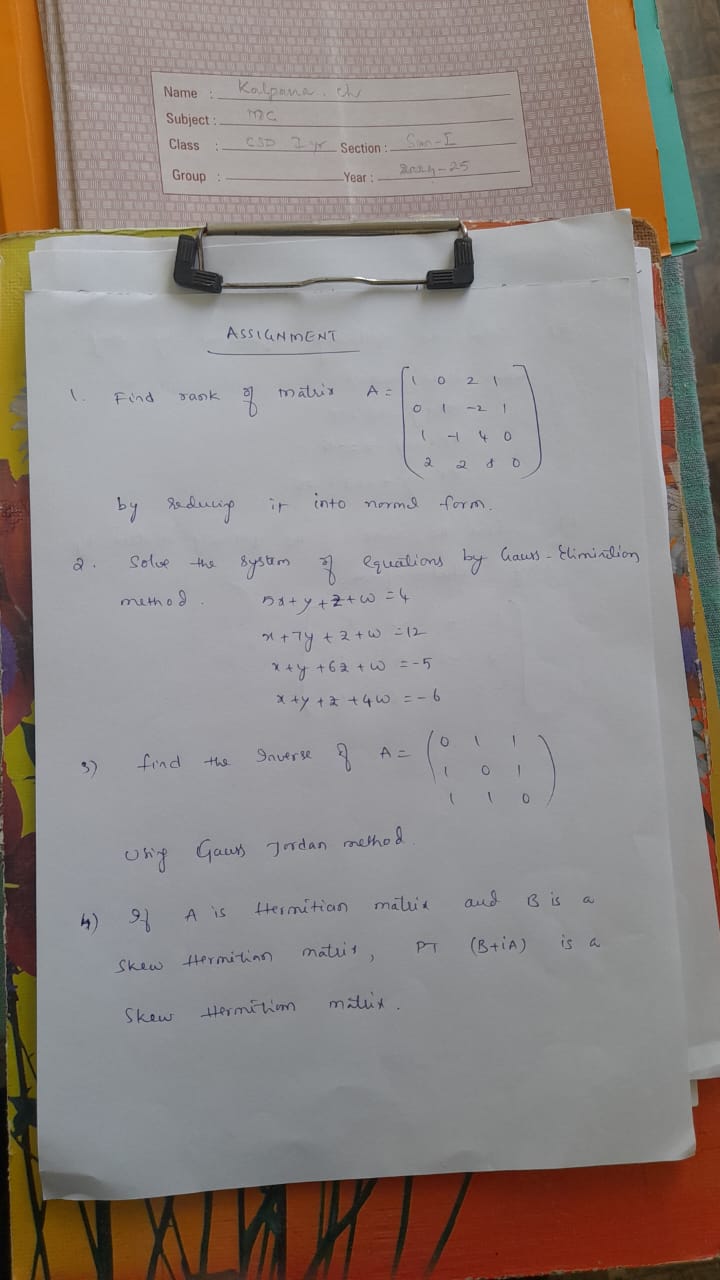 Name : Kalpana. ch
Subject : MC
Class : CSD I yr Section : Sem-I
Group : Year : 2024-25
ASSIGNMENT
1. Find rank of matrix A = [1 0 2 1
0 1 -2 1
1 -1 4 0
2 2 8 0]
by reducing it into normal form.
2. Solve the system of equations by Gauss-Elimination
method. 5x+y+z+w=4
x+7y+z+w=12
x+y+6z+w=-5
x+y+z+4w=-6
3) find the Inverse of A = (0 1 1
1 0 1
1 1 0)
Using Gauss Jordan method.
4) If A is Hermitian matrix and B is a
Skew Hermitian matrix, PT (B+iA) is a
Skew Hermitian matrix.